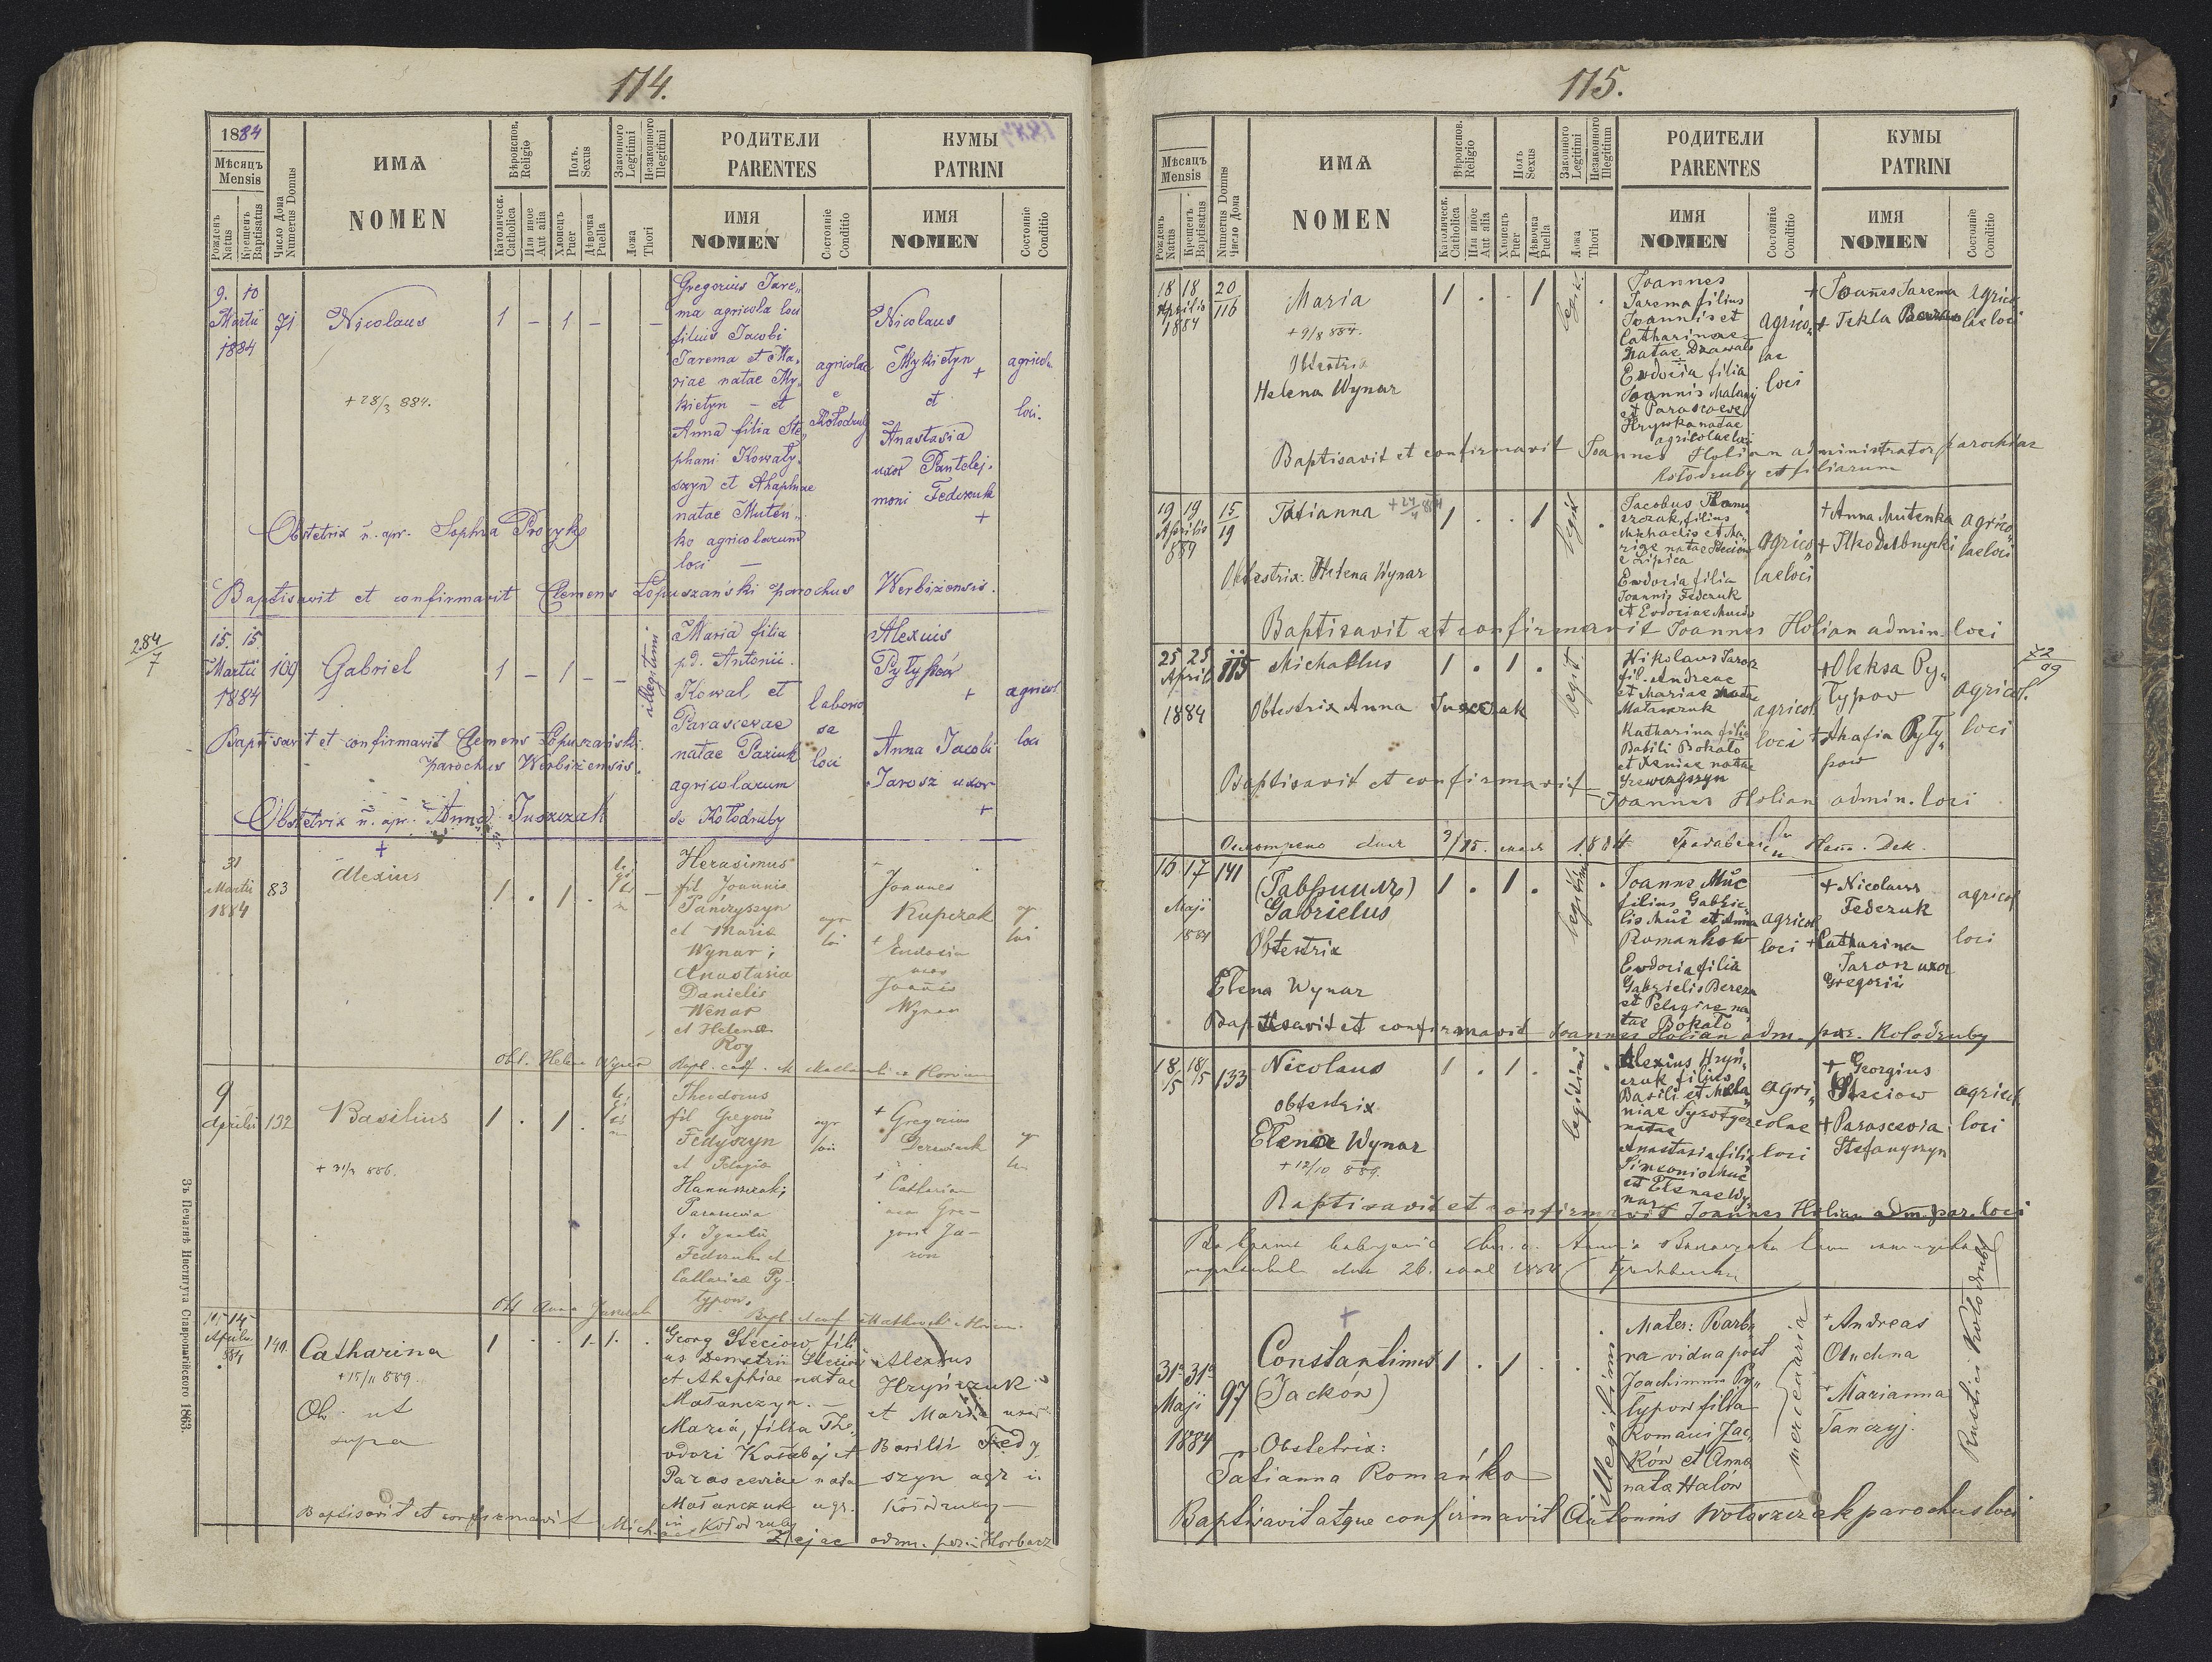 114.
1884
Мѣсяцъ
Mensis
Рожденъ
Natus
Крещенъ
Baptisatus
Число Дома
Numerus Domus
ИМѦ
NOMEN
Вѣроиспов.
Religio
Католическ.
Catholica
Или иное
Aut alia
Полъ.
Sexus
Хлопецъ
Puer
Дѣвочка
Puella
Законного
Legitimi
Незаконного
Illegitimi
Ложа
Thori
РОДИТЕЛИ
PARENTES
ИМЯ
NOMEN
Состоянïе
Conditio
КУМЫ
PATRINI
ИМЯ
NOMEN
Состоянïе
Conditio
9. 10
Martii
1884
71
Nicolaus
1 – 1 –
+ 28/3 884.
Gregorius Jare„
ma agricola loci
filius Jacobi
Jarema et Ma„
riae natae My„
kietyn – et
Anna filia Ste„
phani Kowaly„
szyn et Ahaphiae
natae Muten„
ko agricolarum
loci –
agricolae
e
Kołodruby
Nicolaus
Mykietyn
+
et
Anastasia
uxor Pantelej„
moni Fedczuk
+
agricol.
loci.
Obstetrix n. apr. Sophia Procyk
Baptisavit et confirmavit Clemens Łopuszański parochus Werbizensis.
284/7
15. 15.
Martii
1884
109
Gabriel
1 – 1 – –
illegitimi
Maria filia
p.d. Antonii
Kowal et
Parascevae
natae Paziuk
agricolarum
de Kołodruby
laborio
sa
loci
Alexius
Pyłypów
+
Anna Jacobi
Jarosz uxor
+
agricol
loci
Baptisavit et confirmavit Clemens Łopuszański
parochus Werbizensis.
Obstetrix n. apr. Anna Juszczak
+
31
Martii
1884
83
Alexius
1 . 1 .
Herasimus
fil Joannis
Pańczyszyn
et Maria
Wynar;
Anastasia
Danielis
Wenar
et Helena
Roy
agr
loi
Joannes
Kupczak
+ Eudocia
uxor
Joannis
Wynar
agr
loi
Obst. Helena Wynar
9
Aprilis
132
Basilius
1 . 1 .
+ 31/3 886.
Theodorus
fil Gregorii
Fedyszyn
et Pelagia
Hanuszczak;
Parascevia
f. Ignatii
Fedczuk et
Catharina Py-
typow.
agr
loci
+ Gregorius
+ Catharina
uxor Gre-
gorii Ja-
rosz
Obst Anna Juszczak
14
Aprilis
884
140
Catharina
+ 15/11 889.
Ob. ut
supra
1 . . 1. 1.
Georg Steciow, fili
us Demetrii Steciow
et Ahaphiae natae
Matanczyn. –
Maria, filia The„
odori Kołabaj et
Parasceviae nata
Małanczuk agr.
in Kołodruby
Alexius
Hryńczuk
et Maria uxor
Basilii Fedy
szyn agr in
Kołodruby –
Baptisavit et confirmavit Michael
Zlejac adm. par. Horbacz
Зъ Печатнѣ Института Ставропигійского 1863.
115.
Мѣсяцъ
Mensis
Рожденъ
Natus
Крещенъ
Baptisatus
Numerus Domus
Число Дома
ИМѦ
NOMEN
Вѣроиспов.
Religio
Католическ.
Catholica
Или иное
Aut alia
Полъ
Sexus
Хлопецъ
Puer
Дѣвочка
Puella
Законного
Legitimi
Незаконного
Illegitimum
Ложа
Thori
РОДИТЕЛИ
PARENTES
ИМЯ
NOMEN
Состоянïе
Conditio
КУМЫ
PATRINI
ИМЯ
NOMEN
Состоянïе
Conditio
18 18
Aprilis
1884
20/116
Maria
+ 9/8 884.
Obstetrix
Helena Wynar
1 . . 1
legit.
Joannes
Jarema filius
Joannis et
Catharinae
natae Dzawała
Eudocia filia
Joannis Matwij
et Parascevae
Hryńka natae
agricolae loci
agrico„
lae
loci
+ Joannes Jarema
+ Tekla
agrico
lae loci
Baptisavit et confirmavit Joannes Holian administrator parochiae
Kołodruby et filiarum
19 19
Aprilis
884
15/19
Tatianna + 27/4 884
Obstetrix: Helena Wynar
1 . . 1
legit
Jacobus
szczak, filius
Michaelis et Ma„
riae natae Steciow
e Lipica
Eudocia filia
Joannis Fedczuk
et Eudociae
agrico„
lae loci
+ Anna Mutenka
+ Ilko
agrico„
lae loci
Baptisavit et confirmavit Joannes Holian admin. loci
25 25
April
1884
115
Michaelus
Obstetrix Anna Juszczak
1 . 1 .
legit
Nikolaus Jarosz
fil. Andreae
et Mariae natae
Matanczuk
Katharina filia
Basili Bokało
et Xeniae natae
Szewczyszyn
agricol
loci
+ Oleksa Py„
lypow
+ Ahafia Pyły„
pow
agricol.
loci
72/09
Baptisavit et confirmavit –
Joannes Holian admin. loci
Осмотрено дня 3/15. мая 1884
16 17
Maji
1884
141
(Гавриилъ)
Gabrielus
Obstetrix
Elena Wynar
1 . 1 .
legitimi
Joannes Muć
filius Gabrie„
lis Muć et Anna
Romankow
Eudocia filia
Gabrielis Bereza
et Pelagiae na
tae Bokało
agricol
loci
+ Nicolaus
Fedczuk
+ Catharina
Jarosz uxor
Gregorii
agricol
loci
Baptisavit et confirmavit Joannes Holian adm. par. Kołodruby
18/5 18/5
133
Nicolaus
obstetrix
Elena Wynar
+ 12/10 889.
1 . 1 .
legitimi
Alexius Hryń„
czuk filius
Basili et Mela„
niae
natae
Anastasia filia
Simeonis Muć
et Elenae Wy„
nar
agri„
colae
loci
+ Georgius
Steciow
+ Parascevia
Stefanyszyn
agricol.
loci
Baptisavit et confirmavit Joannes Holian adm. par. loci
+
31a 31a
Maji
1884
97
Constantinus
(Jackón)
Obstetrix:
Tatianna Romańko
1 . 1 . .
illegitimi
Mater: Barba
ra vidua post
Joachimum Py„
łypow filia
Romani Jac„
kón et Anna
nata Halów
mercenaria
+ Andreas
Oluchna
+ Marianna
Tanczyj.
Rustici Kołodruby
Baptisavit atque confirmavit Antonius Wołoszczak parochus loci